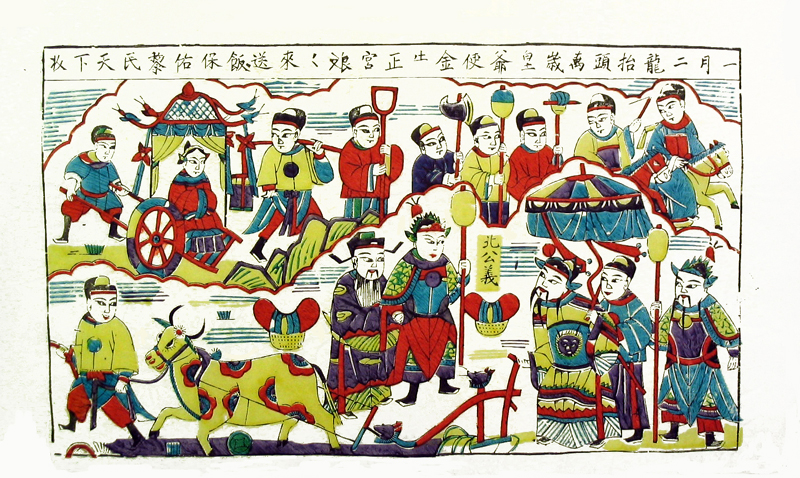 一月二龍抬頭萬歲皇爺使金牛正宮娘々來送飯保佑黎民天下收
北公義